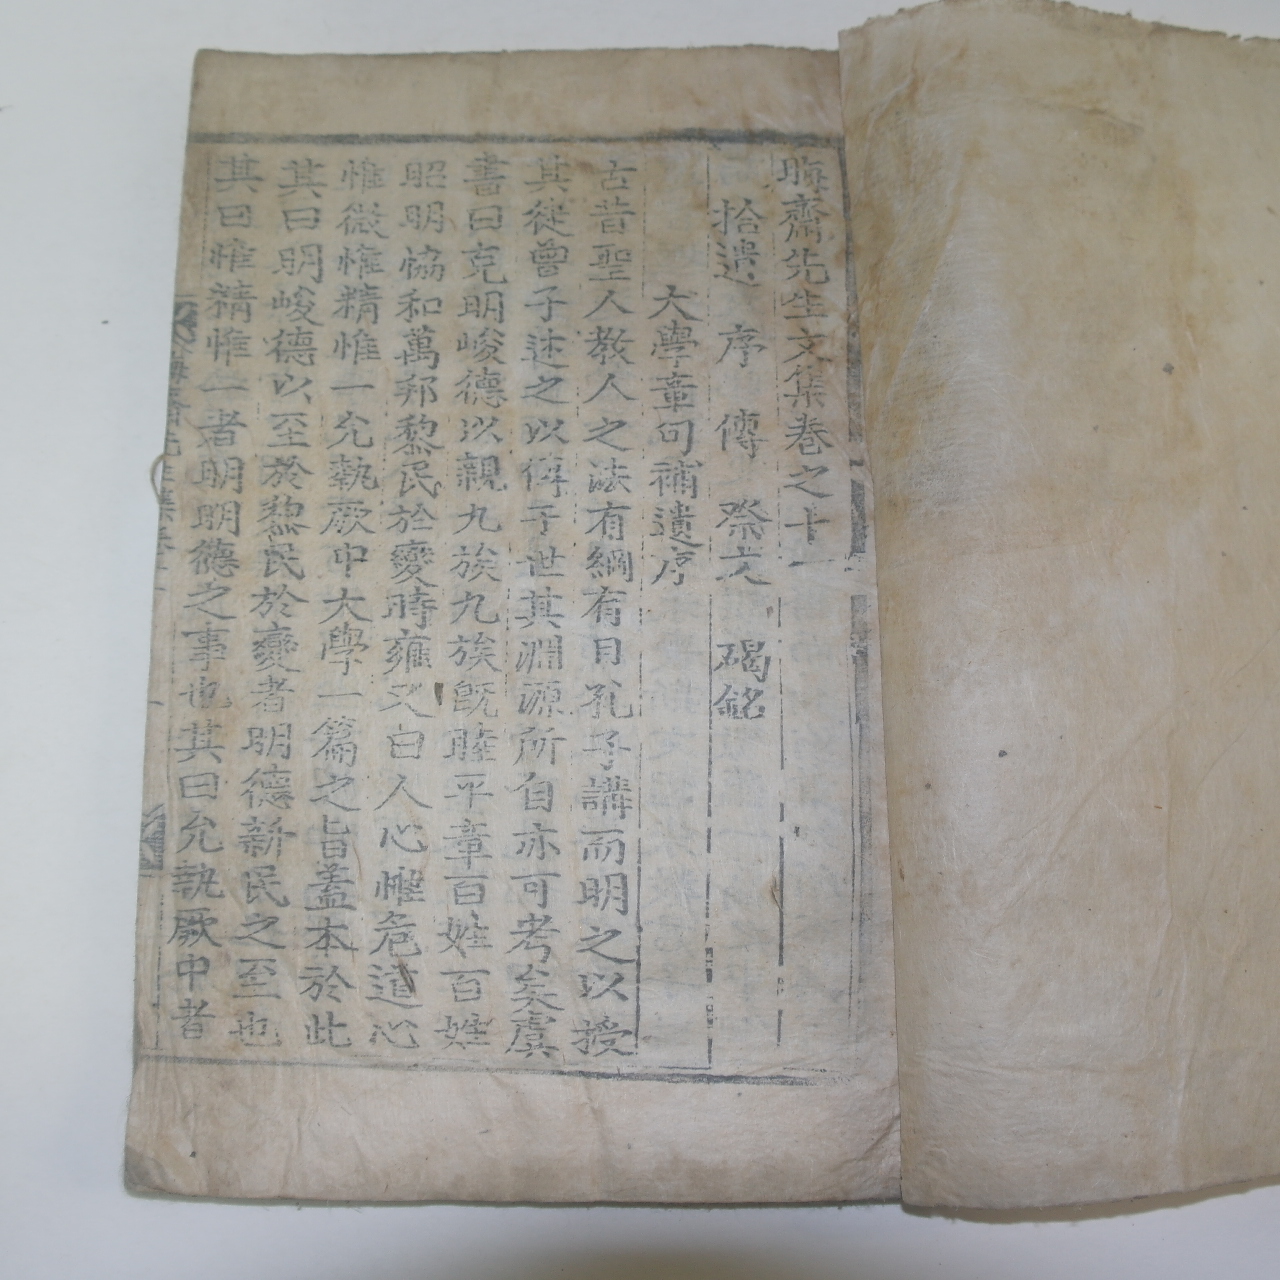 晦齋先生文集卷之十一
拾遺 序 傳 祭文 碣銘
大學章句補遺序
古昔聖人教人之法有綱有目孔子講而明之以授
其徒曾子述之以傳于世其淵源所自亦可考矣虞
書曰克明峻德以親九族九族旣睦平章百姓百姓
昭明恊和萬邦黎民於變時雍又曰人心惟危道心
惟微惟精惟一允執厥中大學一篇之旨盖本於此
其曰明峻德以至於黎民於變者明德新民之至也
其曰惟精惟一者明明德之事也其曰允執厥中者